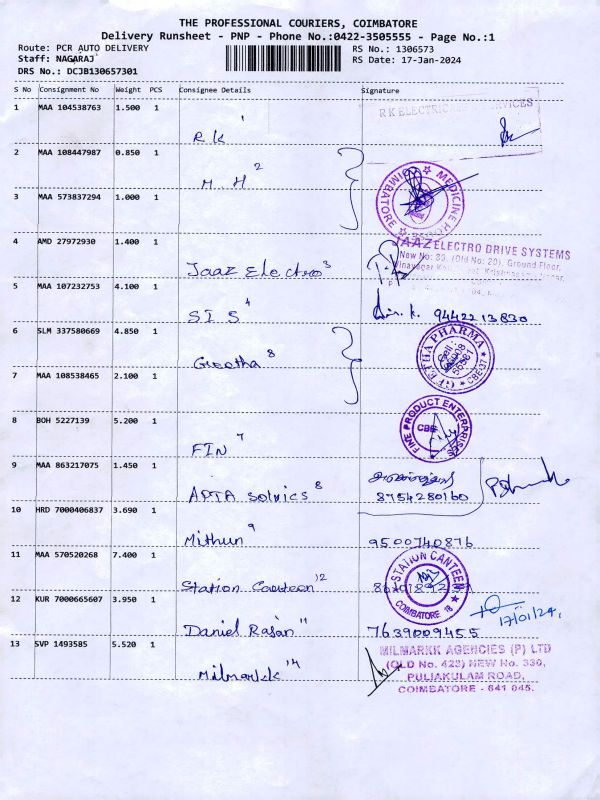 THE PROFESSIONAL COURIERS, COIMBATORE
Delivery Runsheet - PNP - Phone No.:0422-3505555 - Page No.:1
Route: PCR AUTO DELIVERY RS No.: 1306573
Staff: NAGARAJ RS Date: 17-Jan-2024
DRS No.: DCJB130657301
S No Consignment No Weight PCS Consignee Details Signature
1 MAA 104538763 1.500 1
RK 1 R K ELECTRICAL SERVICES
2 MAA 108447987 0.850 1
M. H 2
3 MAA 573837294 1.000 1
COIMBATORE MEDICINE
4 AMD 27972930 1.400 1
Jaaz Electro 3
JAAZ ELECTRO DRIVE SYSTEMS
New No: 33, (Old No: 29), Ground Floor,
5 MAA 107232753 4.100 1
SIS 4 9442213830
6 SLM 337580669 4.850 1
Geetha 8
GEETHA PHARMA CBE-37
7 MAA 108538465 2.100 1
8 BOH 5227139 5.200 1
FIN 7
FINE PRODUCT ENTERPRISES CBE
9 MAA 863217075 1.450 1
APTA Solvics 8 8754280160
10 HRD 7000406837 3.690 1
Mithun 9 9500740876
11 MAA 570520268 7.400 1
Station Canteen 12
STATION CANTEEN COIMBATORE 18
12 KUR 7000665607 3.950 1
17/01/24
Daniel Rajan 11 7639009455
13 SVP 1493585 5.520 1
Milmarkk 14
MILMARKK AGENCIES (P) LTD
(OLD No. 423) NEW No. 330,
PULIAKULAM ROAD,
COIMBATORE - 641 045.